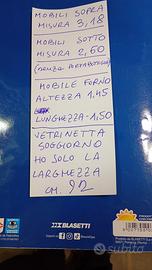 MOBILI SOPRA
MISURA 3,18
MOBILI SOTTO
MISURA 2,60
(SENZA PORTABOTTIGLIE)
MOBILE FORNO
ALTEZZA 1,45
LUNGHEZZA-1,50
VETRINETTA
SOGGIORNO
HO SOLO LA
LARGHEZZA
CM. 92
BLASETTI
Subito